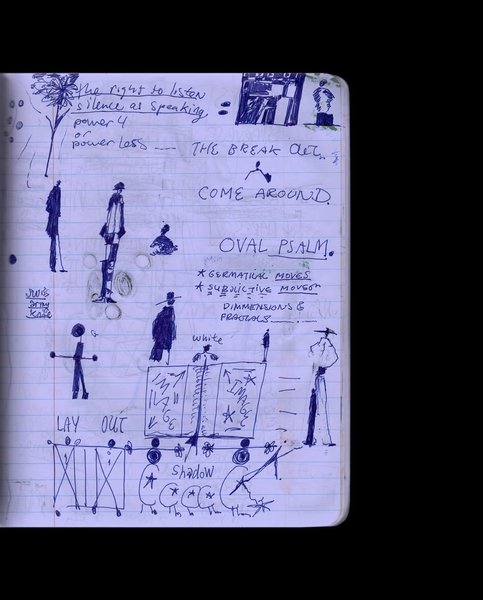 The right to listen
silence as speaking
power 4
or
powerless
THE BREAK OUT.
COME AROUND.
OVAL PSALM.
* GERMATICAL MOVES
* SUBJECTIVE MOVES
DIMMENSIONS &
FRACTALS
white
LAY OUT
shadow